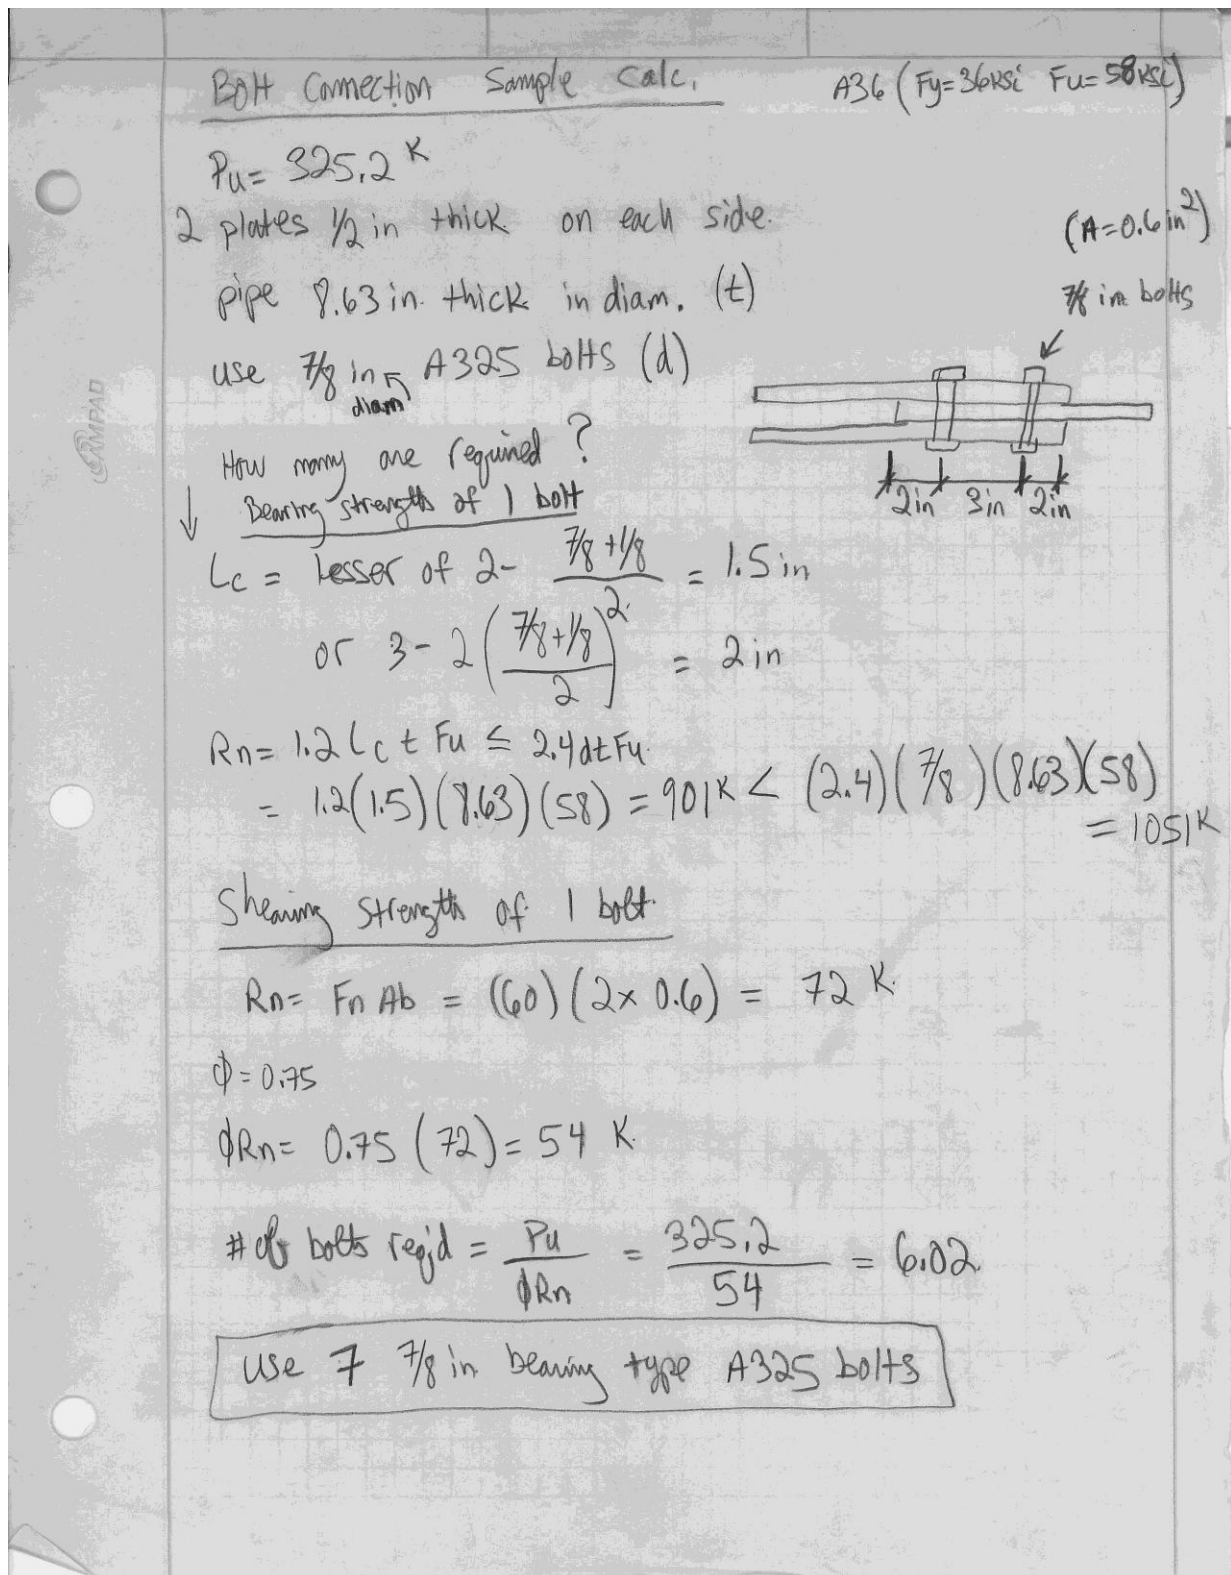 Bolt Connection Sample Calc.
A36 (Fy=36ksi Fu=58ksi)
Pu= 325.2 K
2 plates 1/2 in thick on each side.
(A=0.6in²)
pipe 8.63 in. thick in diam. (t)
7/8 in bolts
use 7/8 in A325 bolts (d)
diam
AMPAD
How many are required?
Bearing strength of 1 bolt
2in 3in 2in
Lc = lesser of 2- (7/8+1/8)/2 = 1.5 in
or 3-2((7/8+1/8)/2)² = 2in
Rn= 1.2 Lc t Fu ≤ 2.4dtFu
= 1.2(1.5)(8.63)(58) = 901K < (2.4)(7/8)(8.63)(58)
= 1051K
Shearing strength of 1 bolt.
Rn= Fn Ab = (60)(2x0.6) = 72 K.
ϕ=0.75
ϕRn= 0.75 (72)= 54 K.
# of bolts req'd = Pu/ϕRn = 325.2/54 = 6.02
use 7 7/8 in bearing type A325 bolts